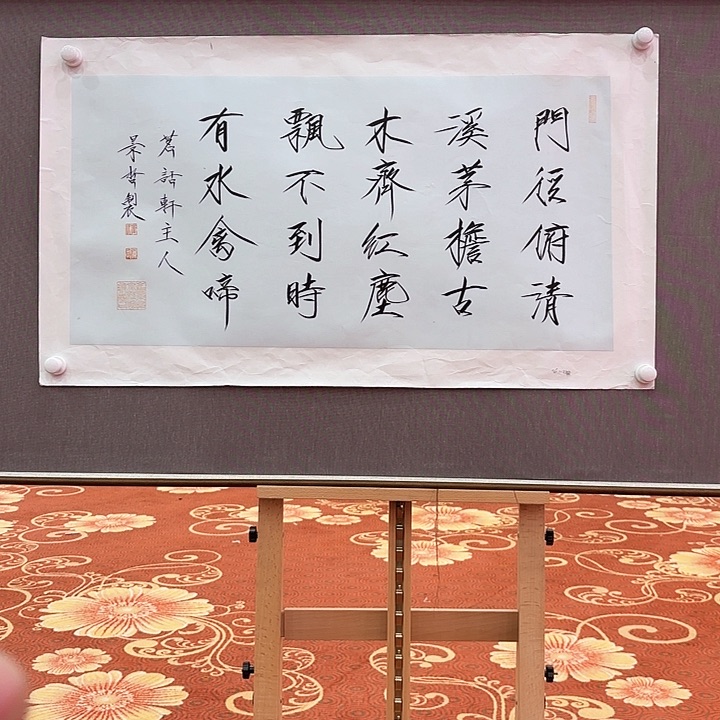 門徑俯清
溪茅檐古
木齊紅塵
飄不到時
有水禽啼
茗話軒主人